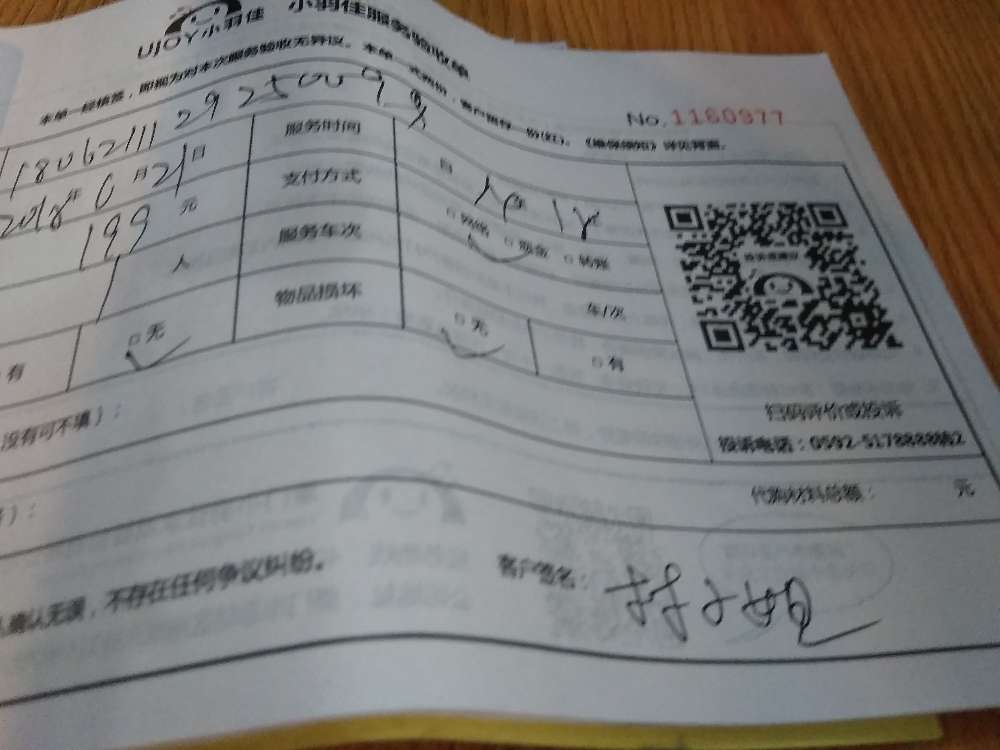 UJOY小羽佳 小羽佳服务验收单
本单一经核签，即视为对本次服务验收无异议。本单一式两份，客户留存一份(红)。《维保须知》详见背面。
No.1160977
18062111292500098
服务时间
2018年6月21日
日
199元
支付方式
网络 现金 转账
人
服务车次
车/次
有
无
物品损坏
无
有
扫码评价或投诉
投诉电话：0592-5178888转2
没有可不填）：
代购材料总额： 元
）：
确认无误，不存在任何争议纠纷。
客户签名：